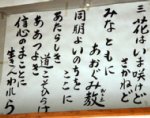 三 花はいま咲けど
さかねど
みなともに
あおぐみ教
同朋よいのちを
ここに
あたらしき
道ことひらけ
ああつよき
信心のまことに
生きこれら